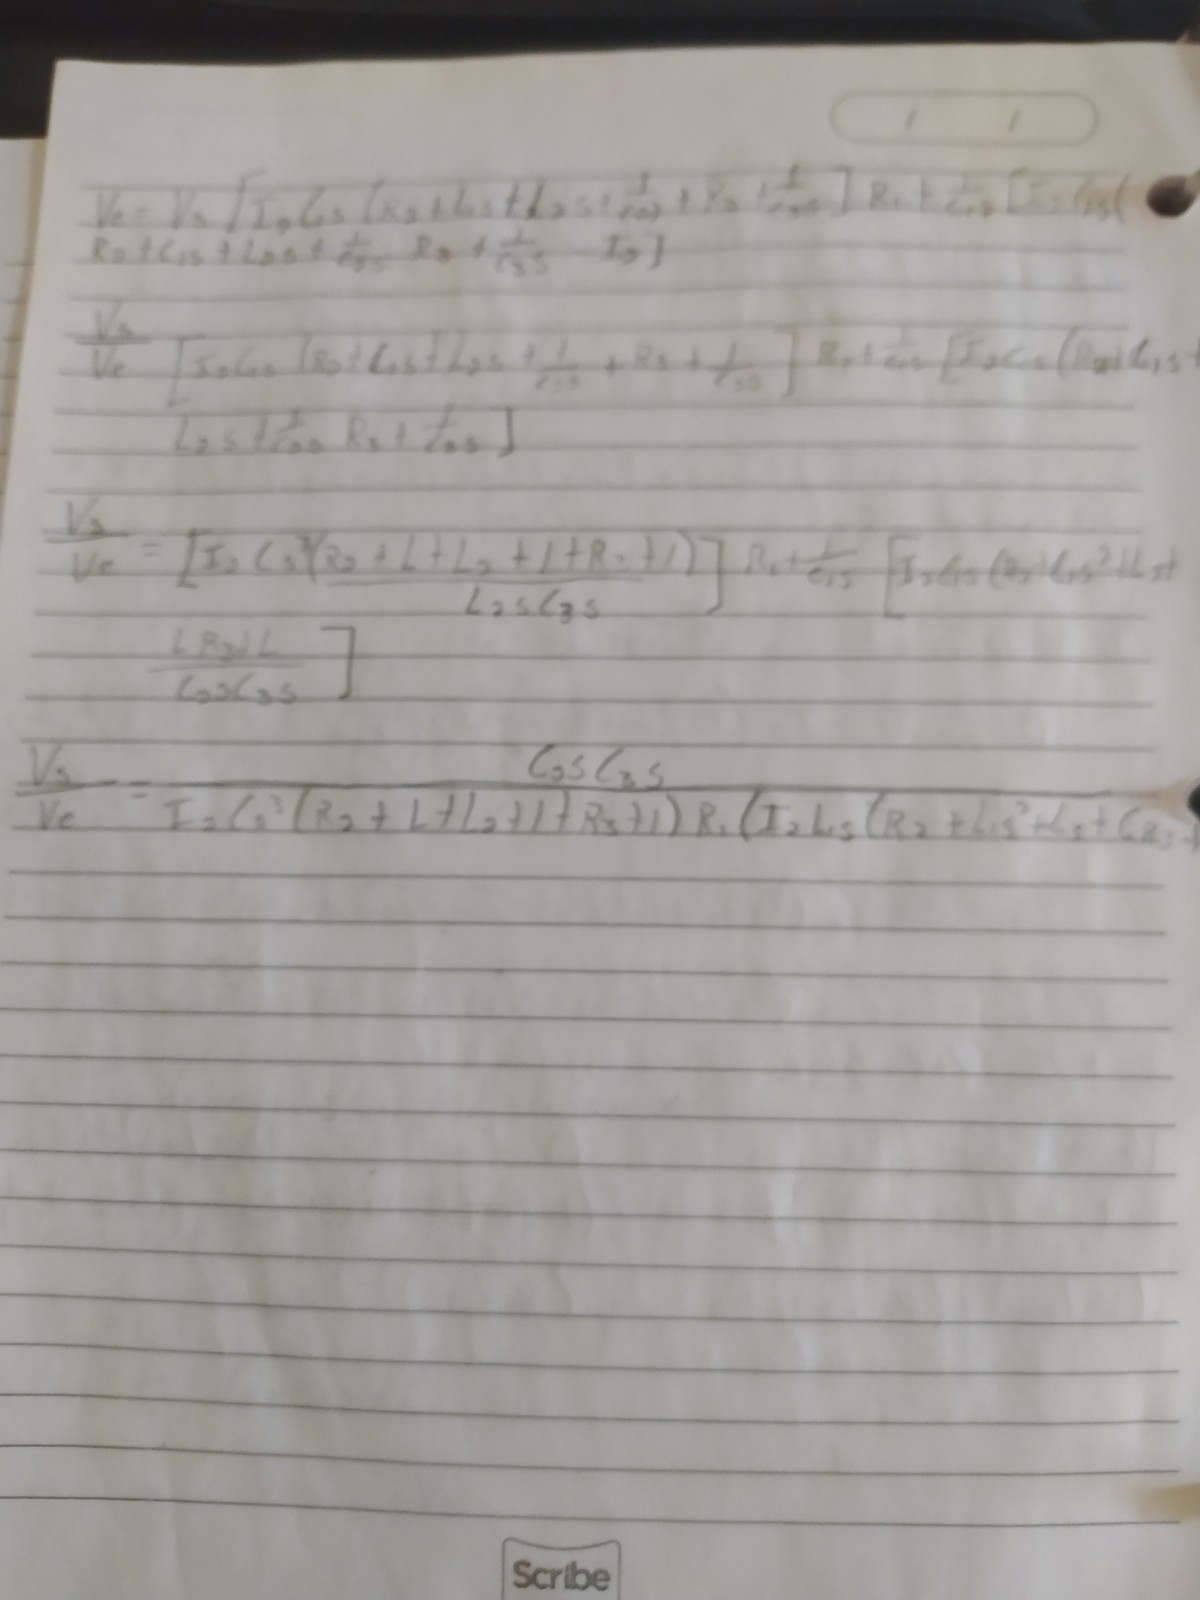 / /
Ve = Vs [I2 C1s (R2 + L1s + L2s + 1/C2s + R3 + 1/C3s] R1 + 1/C1s [I2 C1s (
R2 + L1s + L2s + 1/C2s R3 + 1/C3s - I2]
Vs/Ve [I2C1s (R2 + L1s + L2s + 1/C2s + R3 + 1/C3s] R1 + 1/C1s [I2C1s (R2 + L1s +
L2s + 1/C2s R3 + 1/C3s]
Vs/Ve = [I2 Cs³(R2 + L + L2 + 1 + R3 + 1)/C2sC3s] R1 + 1/C1s [I2C1s (R2 + L1s² + Ls +
LR3+L/C2sC3s]
Vs/Ve = C2sC3s/I2 Cs³(R2 + L + L2 + 1 + R3 + 1) R1 (I2 L1s (R2 + L1s² + Ls + CR3 +
Scribe